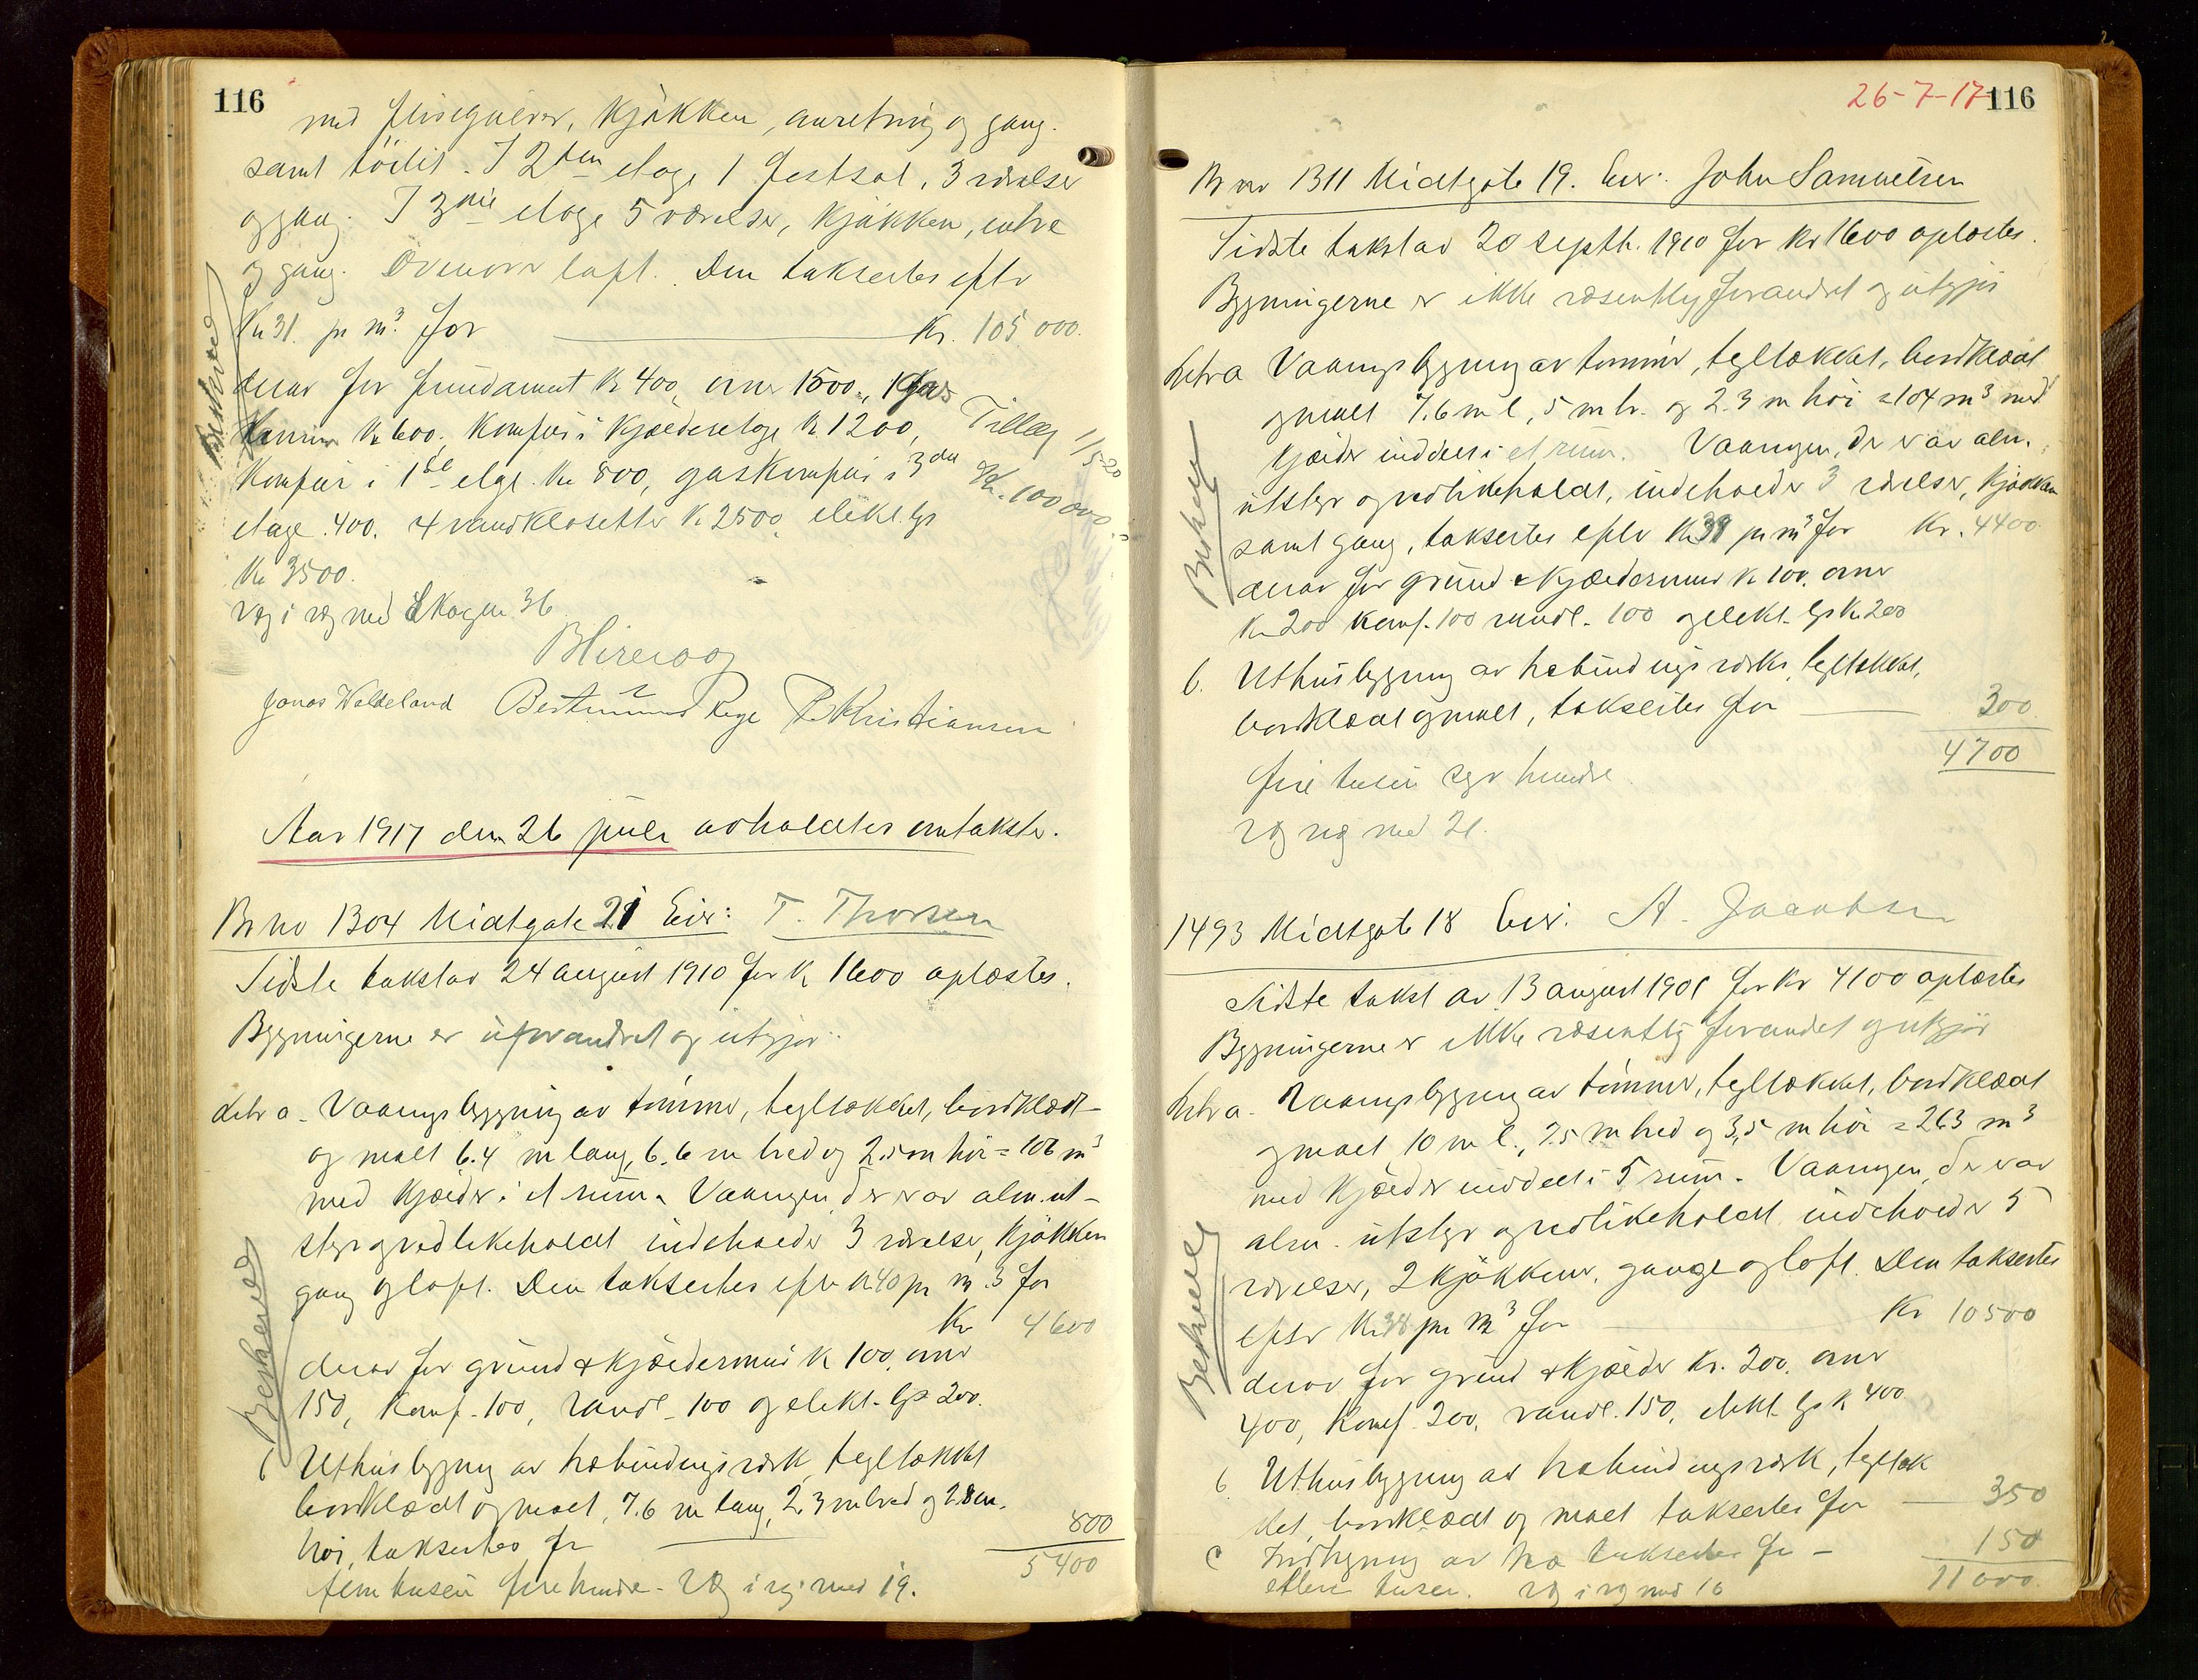 116
med flisegulver, kjøkken, anretning og gang.
samt toilet. I 2den etage 1 festsal, 3 værelser
og gang. I 3die etage 5 værelser, kjøkken, entre
og gang. Ovenover loft. Den taksertes efter
Kr 31. pr m³ for Kr. 105 000.
derav for fundament kr 400, ovner 1500.,
kr 600, komfur i kjælderetage kr 1200,
komfur i 1ste etge. kr 800, gaskomfur i 3die
etage 400. 4 vandklosetter kr 2500, elekt. lys
kr 3500.
væg i væg med Skagen 36.
Tillæg 1/5-20
Kr. 100 000
Beskrevet
Jonas Waldeland Bertinius Rege P. Kristiansen
Aar 1917 den 26 juli avholdtes omtakster.
Br no 1304 Midtgate 21 Eier: T. Thorsen
Sidste takst av 24 august 1910 for kr 1600 oplæstes.
Bygningerne er uforandret og utgjør:
Litr a. Vaaningsbygning av tømmer, tegltækket, bordklædt
og malt 6.4 m lang, 6.6 m bred og 2.5 m høi = 106 m³
med kjælder i et rum. Vaaningen, der er av alm. ut-
styr og vedlikeholdt indeholder 3 værelser, kjøkken
gang og loft. Den taksertes efter kr 40 pr m³ for
Kr 4600
derav for grund & kjældermur kr 100, ovner
150, komf. 100, vandl. 100 og elekt. lys 200.
Beskrevet
b Uthusbygning av træbindingsværk, tegltækket
bordklædt og malt, 7.6 m lang, 2.3 m bred og 2.8 m.
høi, taksertes for 800
5400
fem tusen fire hundre. Væg i væg med 19.
26-7-17 116
Br no 1311 Midtgate 19. Eier: John Samuelsen
Sidste takst av 20 septb. 1910 for kr 1600 oplæstes.
Bygningerne er ikke væsentlig forandret og utgjør
Litr a Vaaningsbygning av tømmer, tegltækket, bordklædt
og malt 7.6 m l, 5 m br. og 2.3 m høi = 104 m³ med
kjælder inddelt i et rum. Vaaningen, der er av alm.
utstyr og vedlikeholdt, indeholder 3 værelser, kjøkken
samt gang, taksertes efter kr 39 pr m³ for Kr. 4400
derav for grund & kjældermur kr 100, ovner
kr 200 komf. 100 vandl. 100 og elekt. lys kr 200
Beskrevet
b. Uthusbygning av træbindingsværk, tegltækket,
bordklædt og malt, taksertes for 300
4700
fire tusen syv hundre.
Væg i væg med 21.
1493 Midtgate 18 Eier: A. Jacobsen
Sidste takst av 13 august 1901 for kr 4100 oplæstes
Bygningerne er ikke væsentlig forandret og utgjør
Litr a. Vaaningsbygning av tømmer, tegltækket, bordklædt
og malt 10 m l., 7.5 m bred og 3,5 m høi = 263 m³
med kjælder inddelt i 5 rum. Vaaningen, der er av
alm. utstyr og vedlikeholdt indeholder 5
værelser, 2 kjøkkener, gange og loft. Den taksertes
efter kr 38 pr m³ for Kr 10500
derav for grund & kjælder kr. 200, ovner
400, komf. 200, vandl. 150, elekt. lys kr 400.
Beskrevet
b Uthusbygning av træbindingsværk, tegltæk
det, bordklædt og malt taksertes for 350
c Indhegning av træ taksertes for 150
11000.
elleve tusen. Væg i væg med 16